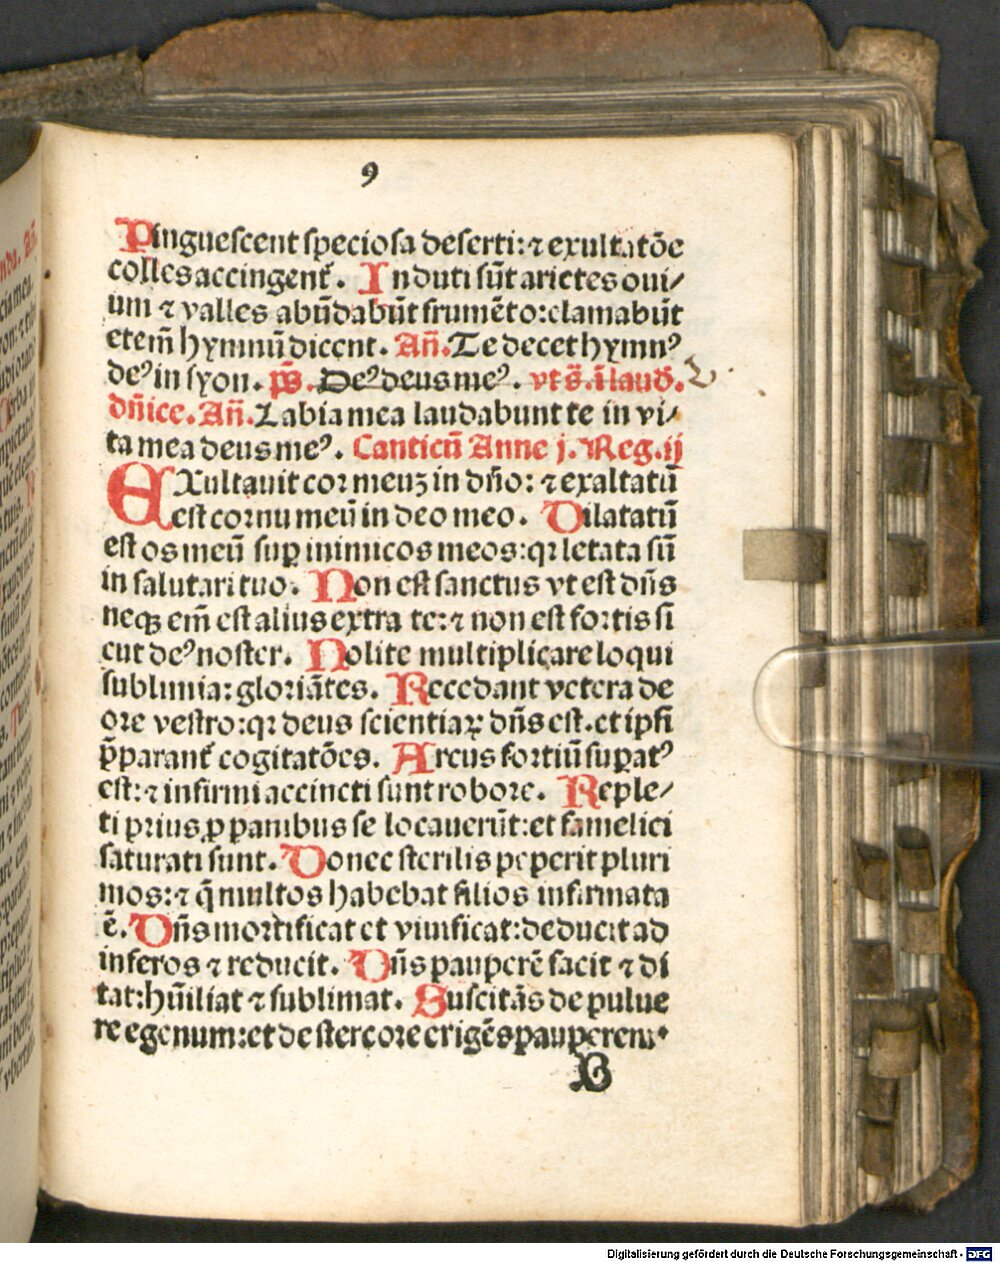 9
Pinguescent speciosa deserti: ⁊ exultatōe
colles accingent᷑. Induti sūt arietes oui/
um ⁊ valles abūdabūt frumēto: clamabūt
etem̄ hymnū dicent. An̄. Te decet hymnꝰ
deꝰ in syon. ps̄. Deꝰ deus meꝰ. vt s̄. ī laud̄.
dn̄ice. An̄. Labia mea laudabunt te in vi/
ta mea deus meꝰ. Canticū Anne j. Reg. ij
EXultauit cor meuʒ in dn̄o: ⁊ exaltatū
est cornu meū in deo meo. Dilatatū
est os meū suꝑ inimicos meos: qꝛ letata sū
in salutari tuo. Non est sanctus vt est dn̄s
neqꝫ em̄ est alius extra te: ⁊ non est fortis si
cut deꝰ noster. Nolite multiplicare loqui
sublimia: gloriātes. Recedant vetera de
ore vestro: qꝛ deus scientiaꝝ dn̄s est. et ipsi
p̄parant᷑ cogitatōes. Arcus fortiū suꝑatꝰ
est: ⁊ infirmi accincti sunt robore. Reple/
ti prius ꝓ panibus se locauerūt: et famelici
saturati sunt. Donec sterilis peperit pluri
mos: ⁊ q̄ multos habebat filios infirmata
ē. Dn̄s mortificat et viuificat: deducit ad
inferos ⁊ reducit. Dn̄s pauperē facit ⁊ di
tat: hūiliat ⁊ sublimat. Suscitās de pulue
re egenum: et de stercore erigēs pauperem.
B
Digitalisierung gefördert durch die Deutsche Forschungsgemeinschaft - DFG